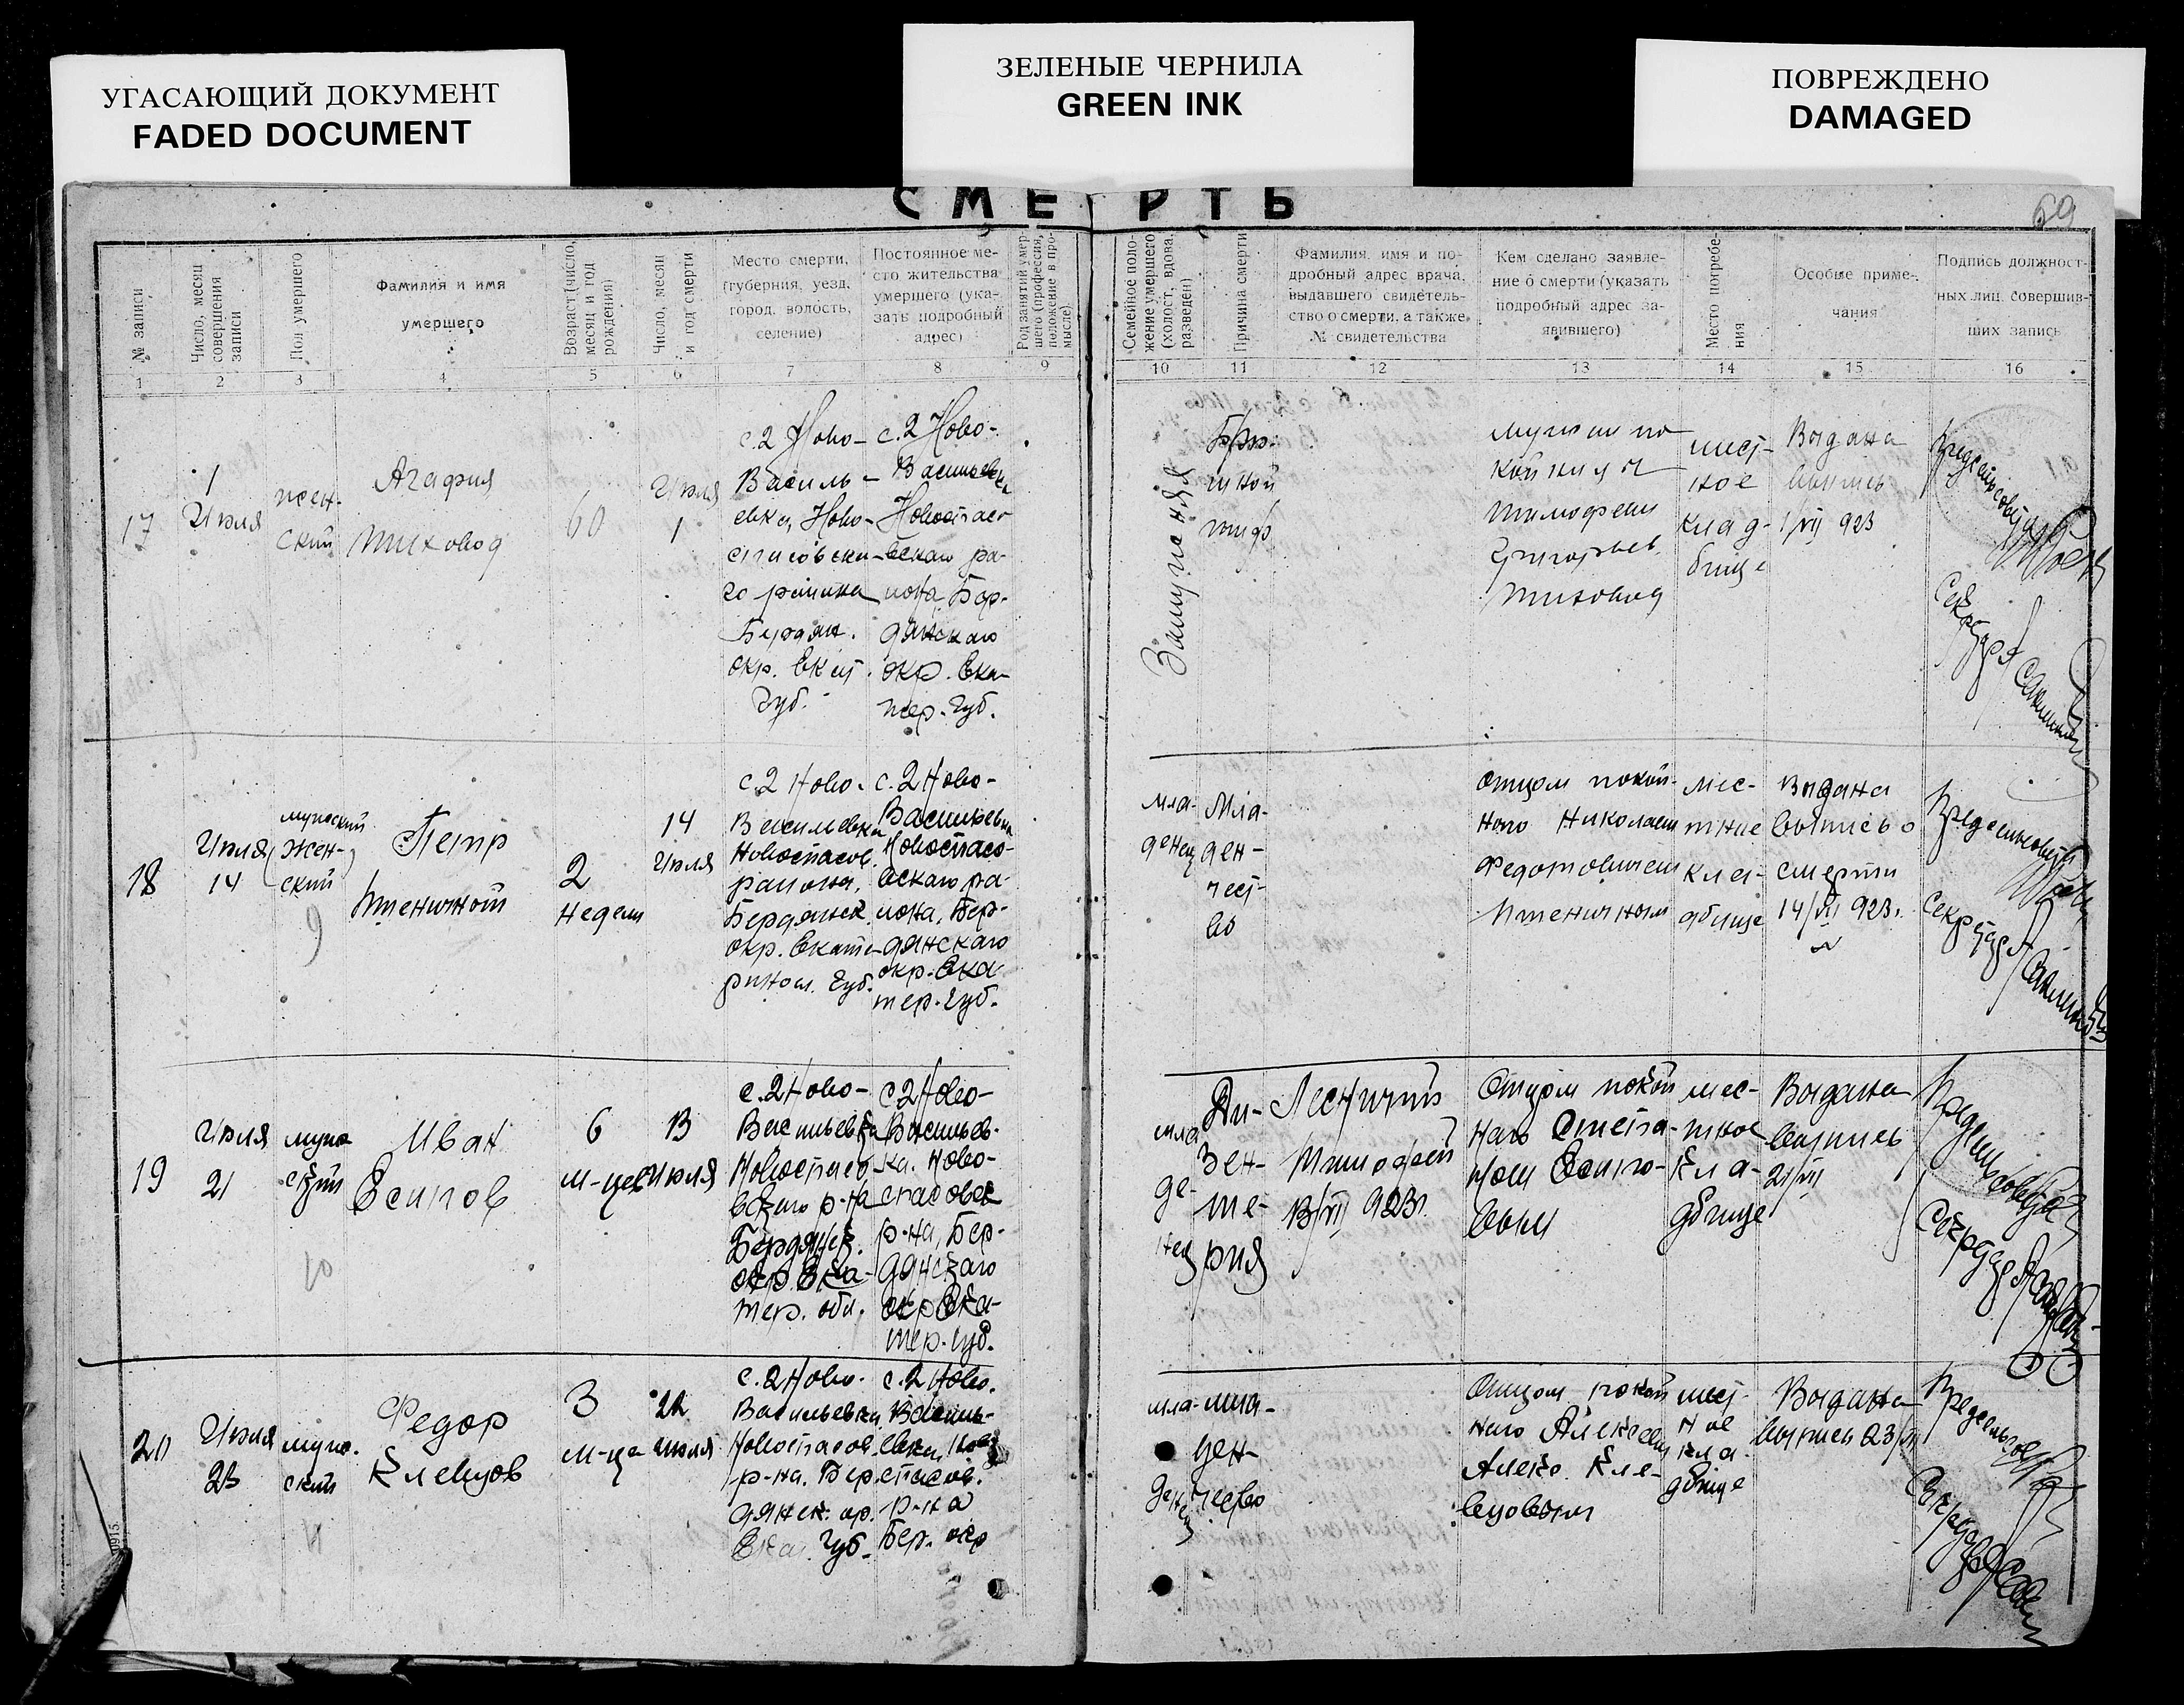 УГАСАЮЩИЙ ДОКУМЕНТ
FADED DOCUMENT
ЗЕЛЕНЫЕ ЧЕРНИЛА
GREEN INK
ПОВРЕЖДЕНО
DAMAGED
СМЕРТЬ
69
№ записи
Число, месяц
совершения
записи
Пол умершего
Фамилия и имя
умершего
Возраст (число,
месяц и год
рождения)
Число, месяц
и год смерти
Место смерти,
(губерния, уезд,
город, волость,
селение)
Постоянное ме-
сто жительства
умершего (ука-
зать подробный
адрес)
Род занятий умер-
шего (профессия,
положение в про-
мысле)
Семейное поло-
жение умершего
(холост, вдова,
разведен)
Причина смерти
Фамилия, имя и по-
дробный адрес врача,
выдавшего свидетель-
ство о смерти, а также
№ свидетельства
Кем сделано заявле-
ние о смерти (указать
подробный адрес за-
явившего)
Место погребе-
ния
Особые приме-
чания
Подпись должност-
ных лиц, совершив-
ших запись
1 2 3 4 5 6 7 8 9 10 11 12 13 14 15 16
17
1
Июля
жен-
ский
Агафия
Тиховод
60
Июля
1
с. 2 Ново-
Василь-
евка, Ново-
спасовско-
го района
Бердян.
окр. Екат.
Губ.
с. 2 Ново-
Васильевка
Новоспасо-
вскаго ра-
иона Бер-
дянскаго
окр. Ека-
тер. Губ.
Замужняя
Брю-
шной
тиф
мужем по
койницы
Тимофеем
Григорьев.
Тиховод
мест-
ное
клад-
бище
Выдана
выпись
1/VII 923
Предсельсовета
Секретарь
18
Июля
14
мужской
жен-
ский
9
Петр
Пшеничной
2
недели
14
Июля
с. 2 Ново-
Васильевка
Новоспасов.
района,
Бердянск.
окр. Екате-
ринос. Губ.
с. 2 Ново-
Васильевка
Новоспасо-
вскаго ра-
иона, Бер-
дянскаго
окр. Ека-
тер. Губ.
мла-
денец
Мла-
ден-
чест-
во
Отцом покой-
ного Николаем
Федотовичем
Пшеничным
мес-
тное
кла-
дбище
Выдана
выпись о
смерти
14/VII 923 г.
Предсельсовета
Секретарь
19
Июля
21
муж
ский
10
Иван
Есипов
6
м-цев
13
Июля
с. 2 Ново-
Васильевка
Новоспасо-
вскаго р-на
Бердянск.
окр. Ека-
тер. обл.
с 2 Ново-
Васильев-
ка. Ново-
спасовск
р-на, Бер-
дянскаго
окр Ека-
тер. Губ.
мла
де-
нец
Ди-
зен-
те-
рия
Лесничий
Тимофей
13/VII 923 г.
Отцом покой
наго Степа-
ном Есипо-
вым
мес-
тное
кла-
дбище
Выдана
выпись
21/VII
Предсельсовета
Секретарь
20
Июля
23
муж.
ский
11
Федор
Клевцов
3
м-ца
22
июля
с. 2 Ново-
Васильевка
Новоспасов.
р-на. Бер
дянск. ор.
Ека. Губ.
с. 2 Ново.
Василь-
евка, Ново
спасов.
р-на
Бер. окр
мла-
денец
мла-
ден-
чество
Отцом покой
наго Алексеем
Алекс. Кле-
вцовым
мест-
ное
кла-
дбище
Выдана
выпись 23/VII
Предсельсовета
Секретарь